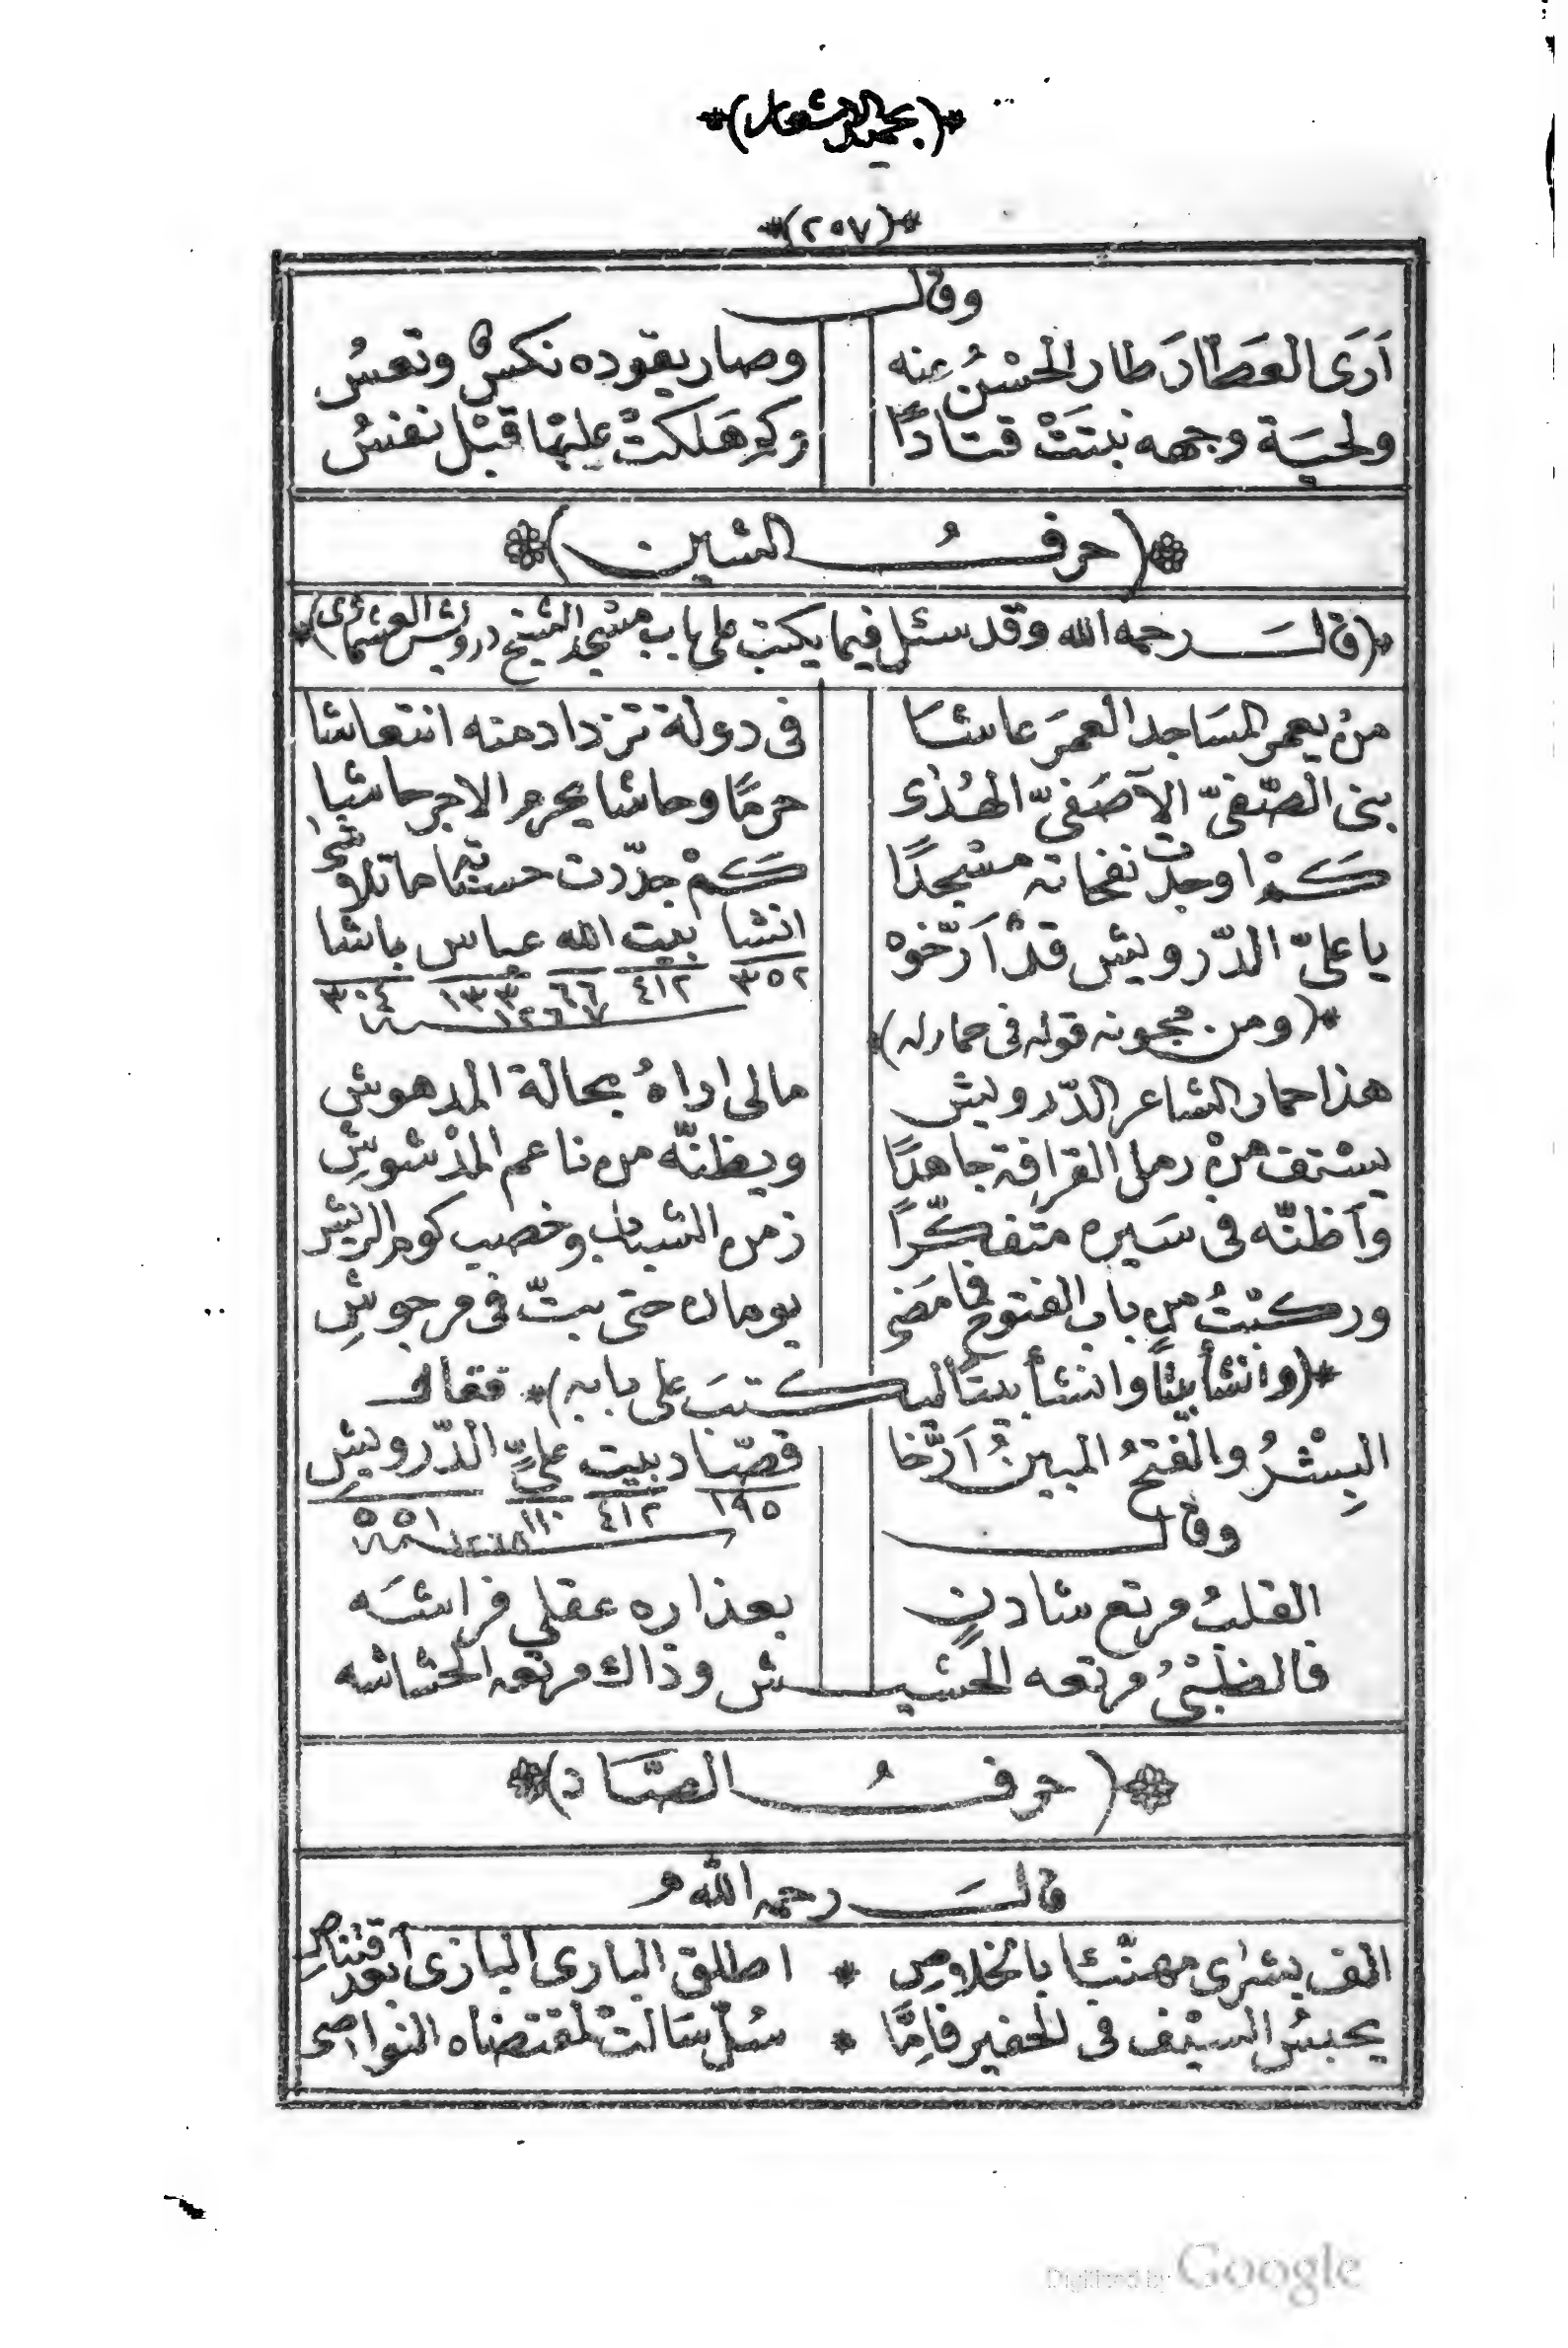 *(بحميد الاشعار)*
*(٢٥٧)*
وقال
اَرَى العَطّارَ طار الحُسْنُ عنه وصار يقوده نكسٌ وتعسُ
ولحيَة وجهه نبتَتْ قتادًا وكم هَلكتْ عليها قبْل نفسُ
*(حرفُ الشين)*
*(قالَ رحمه الله وقد سئل فيما يكتب على باب مسجد الشيخ درويش العشماوى)*
منْ يعمر المسَاجد العمرَ عاشَا فى دولة تزداد منه انتعاشا
بنى الصّفىّ الآصَفىّ الهُدٰى حرمًا وحاشا يحرم الاجر حاشا
كَمْ اوجدت نفحاته مسْجدًا كَمْ جدّدت حسنًا ما تلاشى
يا علىّ الدّرويش قدْ اَرّخوْه انشا بيت الله عباس باشا
٣٥٢ ٤١٢ ٦٦ ١٣٣ ٣٠٤
١٢٦٧
*(ومن مجونه قوله فى حمار له)*
هذا حمار الشاعر الدّرويش مالى اراهُ بحالة المدهوش
يستف منْ رمل القرافة جاهدًا ويظنّه من ناعم المدْشوشِ
واَظنّه فى سَيره متفكّرًا زمن الشباب وخصب كوم الريش
وركبْتُ من باب الفتوح فما مَضى يومان حتى بتّ فى مرجوشِ
*(وانشأ بيتًا وانشأ بيتًا ليكتبَ على بابه)* فقال
البِشْرُ والفتحُ المبينُ اَرّخا قصّاد بيت علىّ الدّرويش
١٩٥ ٤١٢ ١١٠ ٥٥١
١٢٦٨
وقال
القلبُ مرتع شادنٍ بعذاره عقلى فراشَه
فالظبْىُ مرتعه الحشيـش وذاك مرتعه الحشاشه
*(حرفُ الصَّاد)*
قالَ رحمه الله
الف بشرٰى مهنّئا بالخلاصِ * اطلق البارى البازى بعد اقتناص
يحبسُ السيْف فى الحفير فاِمّا * سُلّ سَالتْ لمقتضاه النواصى
Digitized by Google